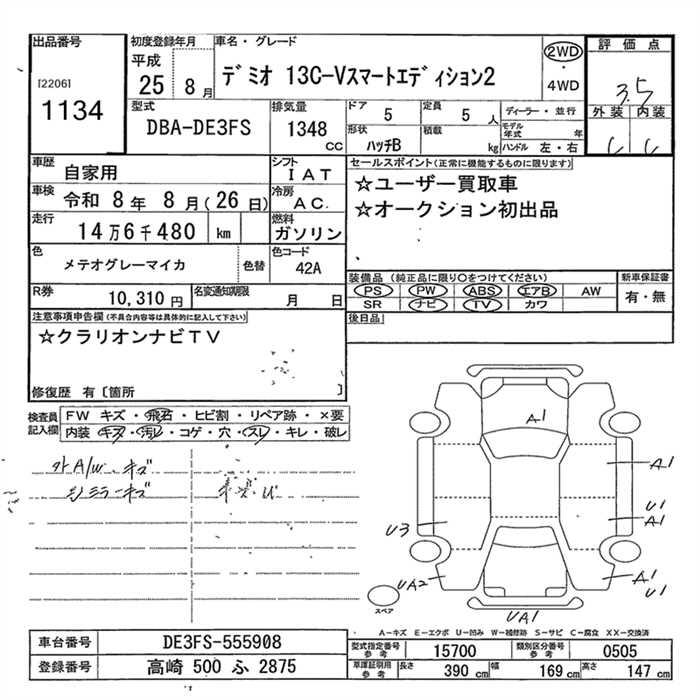 出品番号
[2206]
1134
初度登録年月
平成
25 8月
車名・グレード
デミオ 13C-Vスマートエディション2
2WD
・
4WD
評価点
3.5
外装 内装
C C
型式
DBA-DE3FS
排気量
1348
CC
ドア
5
定員
5 人
形状
ハッチB
積載
kg
ディーラー・並行
モデル年式 年
ハンドル 左・右
車歴
自家用
シフト
IAT
車検
令和 8年 8月(26日)
冷房
AC
走行
14万6千480 km
燃料
ガソリン
色
メテオグレーマイカ
色替
色コード
42A
R券
10,310円
名変通知期限
月 日
セールスポイント(正常に機能するものに限ります)
☆ユーザー買取車
☆オークション初出品
装備品 (純正品に限り○をつけてください)
PS PW ABS エアB AW
SR ナビ TV カワ
新車保証書
有・無
後日品
注意事項申告欄(不具合内容等は具体的に記入して下さい)
☆クラリオンナビTV
修復歴 有〔箇所 〕
検査員記入欄
FW キズ・飛石・ヒビ割・リペア跡・×要
内装・キズ・汚レ・コゲ・穴・スレ・キレ・破レ
外A/w キズ
ミラーキズ
A1
A1
U1
A1
U3
A1
U1
UA2
UA1
スペア
A-キズ E-エクボ U-凹み W-補修跡 S-サビ C-腐食 XX-交換済
車台番号
DE3FS-555908
登録番号
高崎 500 ふ 2875
型式指定番号
参考
15700
類別区分番号
参考
0505
車庫証明用
参考
長さ
390 cm
幅
169 cm
高さ
147 cm